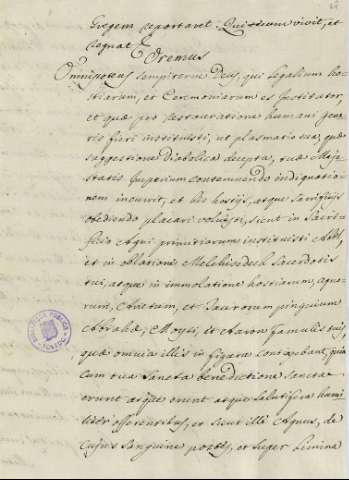 Gregem reportaret. Qui tecum vivit, et
regnat &
Oremus
Omnipotens sempiterne Deus, qui legalium ho-
stiarum, et Ceremoniarum es Institutor,
et quæ pro restauratione humani gene-
ris fieri instituisti, ut plasmatio tua, quæ
suggestione diabolica decepta, tuæ Maje-
statis Imperium contemnendo indignatio-
nem incurrit, et his hostijs, atque sacrificijs
obediendo placari voluisti, sicut in Sacri-
ficio Agni primitiarum instituisti Abel,
et in oblatione Melchisedech Sacerdotis
tui, atque in immolatione hostiarum, agno-
rum, Arietum, et Taurorum pinguium
Abrahæ, Moysi, et Aaron famulis tuis,
quæ omnia illis in figura constabant, quia
cum tua Sancta benedictione sancta
erunt atque erunt atque salutifera humi-
liter offerentibus, et sicut illi Agnus, de
Cujus Sanguine postes, et super Limina